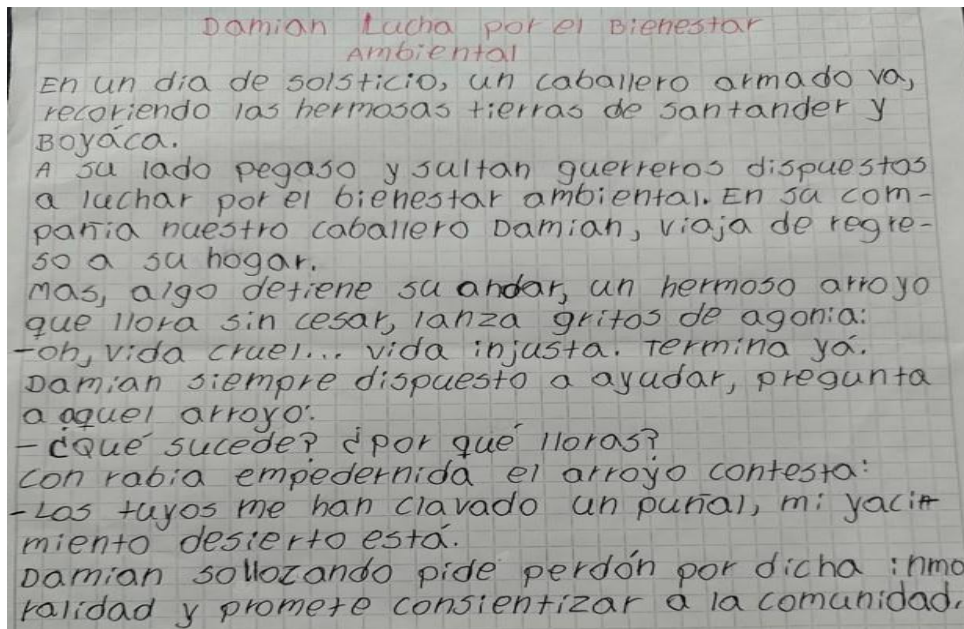 Damian Lucha por el Bienestar
Ambiental
En un dia de solsticio, un caballero armado va,
recoriendo las hermosas tierras de santander y
Boyáca.
A su lado pegaso y sultan guerreros dispuestos
a luchar por el bienestar ambiental. En su com-
pañia nuestro caballero Damian, viaja de regre-
so a su hogar.
Mas, algo detiene su andar, un hermoso arroyo
que llora sin cesar, lanza gritos de agonia:
-oh, vida cruel... vida injusta. Termina yá.
Damian siempre dispuesto a ayudar, pregunta
a aquel arroyo:
-¿Qué sucede? ¿por qué lloras?
con rabia empedernida el arroyo contesta:
-Los tuyos me han clavado un puñal, mi yacim
miento desierto está.
Damian sollozando pide perdón por dicha inmo
ralidad y promete consientizar a la comunidad.